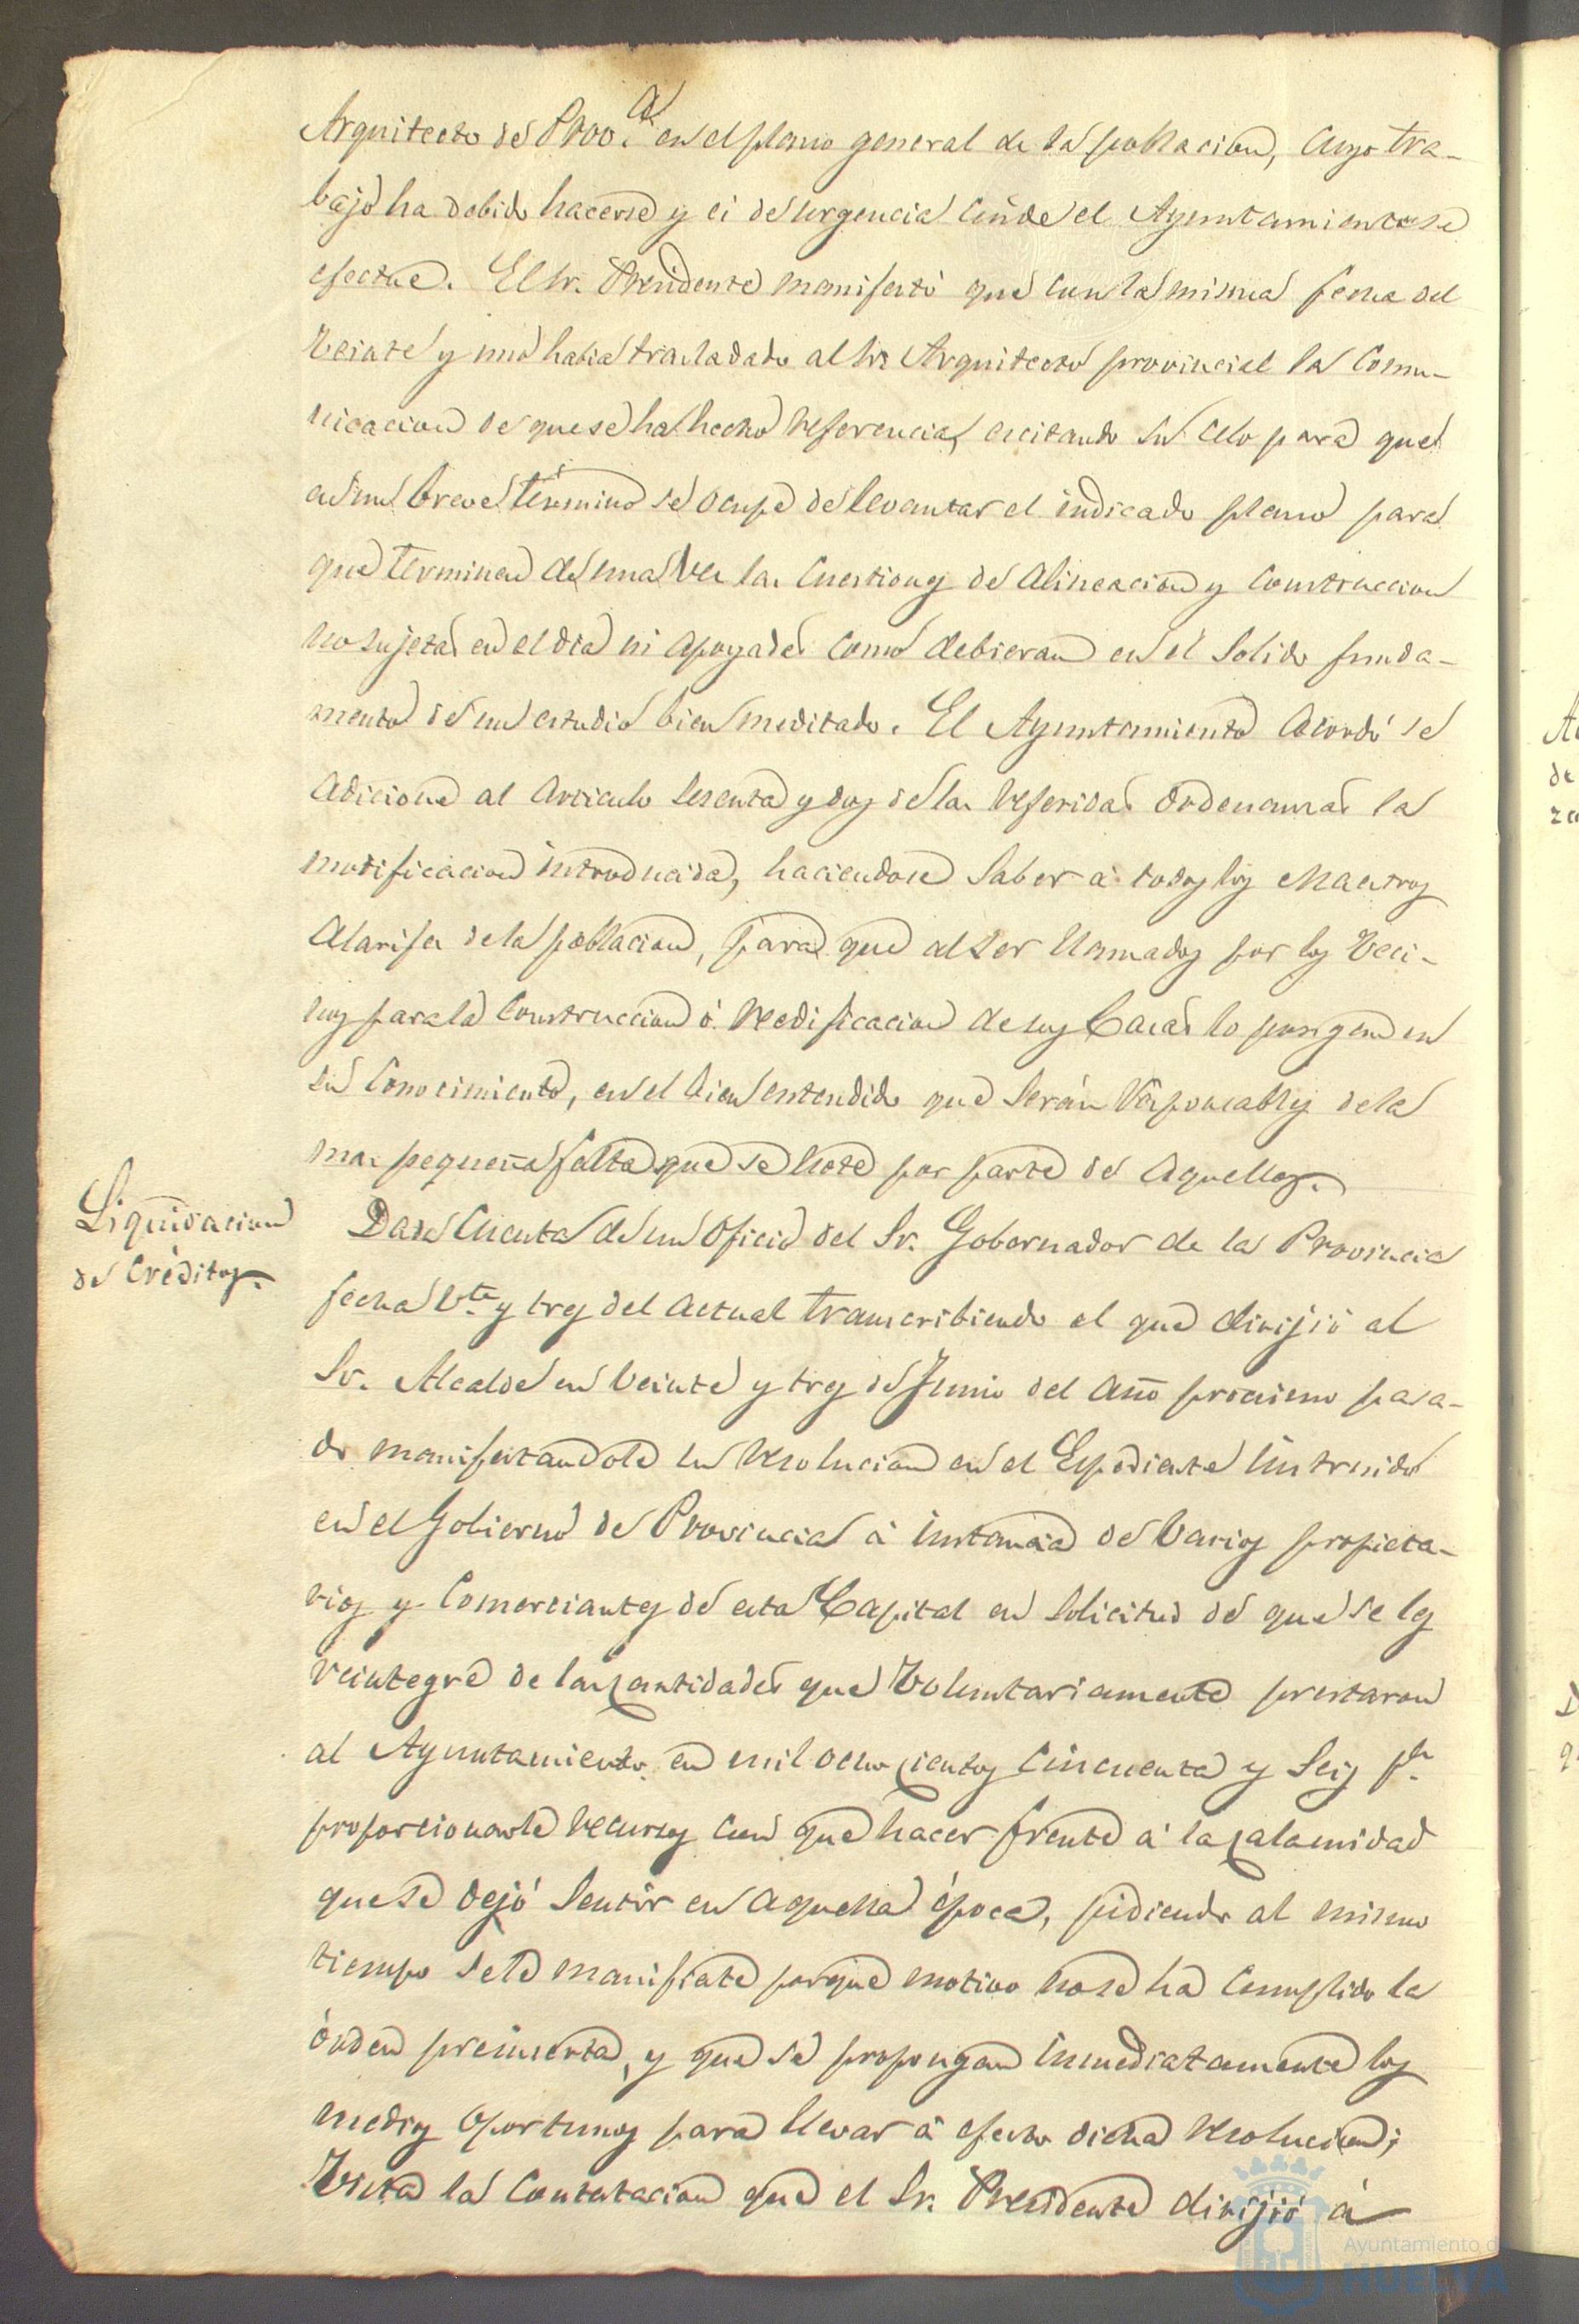 Arquitecto de Prov.ª en el plano general de la poblacion, cuyo tra-
bajo ha debido hacerse y si de urgencia cuide el Ayuntamiento se
efectue. El Sr. Presidente manifestó que con la misma fecha del
veinte y uno habia trasladado al Sr. Arquitecto provincial la comu-
nicacion de que se ha hecho referencia, escitando su celo para que
en un breve término se ocupe de levantar el indicado plano para
que terminen de una vez las cuestiones de alineacion y construccion
no sujetas en el dia ni apoyadas como debieran en el solido funda-
mento de un estudio bien meditado. El Ayuntamiento acordó se
adicione al articulo sesenta y dos de las referidas ordenanzas la
modificacion introducida, haciendose saber á todos los Maestros
Alarifes de la poblacion, para que al ser llamados por los veci-
nos para la construccion ó reedificacion de sus casas lo pongan en
su conocimiento, en el bien entendido que serán responsables de la
mas pequeña falta que se note por parte de aquellos.
Liquidacion
de Créditos.
Dada cuenta de un oficio del Sr. Gobernador de la Provincia
fecha v.te y tres del actual transcribiendo el que dirijió al
Sr. Alcalde en veinte y tres de Junio del año procsimo pasa-
do manifestandole su resolucion en el Espediente instruido
en el Gobierno de Provincia á instancia de varios propieta-
rios y comerciantes de esta Capital en solicitud de que se les
reintegre de las cantidades que voluntariamente prestaron
al Ayuntamiento en mil ochocientos cincuenta y seis p.a
proporcionarle recursos con que hacer frente á la calamidad
que se dejó sentir en aquella época, pidiendo al mismo
tiempo se le manifieste por que motivo no se ha cumplido la
órden preinserta, y que se propongan inmediatamente los
medios oportunos para llevar á efecto dicha resolucion;
Vista la contestacion que el Sr. Presidente dirijió á
Ayuntamiento d
HUELVA